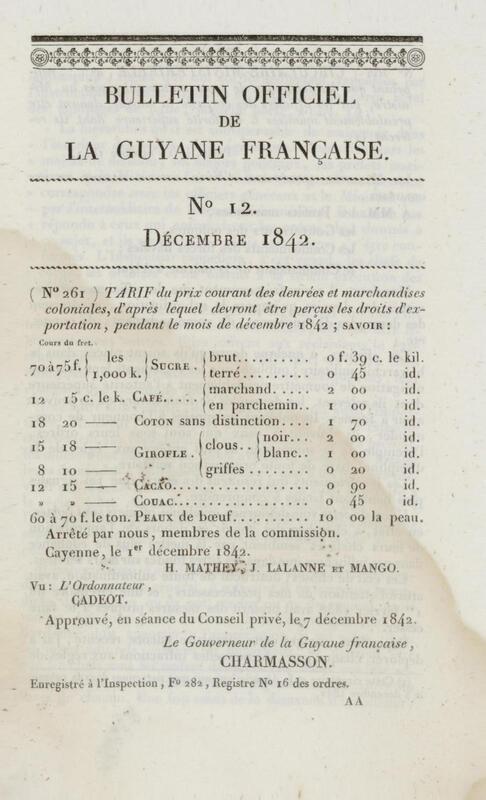 BULLETIN OFFICIEL
DE
LA GUYANE FRANÇAISE.
Nº 12.
DÉCEMBRE 1842.
( Nº 261 ) TARIF du prix courant des denrées et marchandises
coloniales, d'après lequel devront être perçus les droits d'ex-
portation, pendant le mois de décembre 1842 ; SAVOIR :
Cours du fret.
70 à 75 f. { les 1,000 k. } SUCRE . { brut.......... 0 f. 39 c. le kil.
terré.......... 0 45 id.
12 15 c. le k. CAFÉ..... { marchand. ..... 2 00 id.
en parchemin.. 1 00 id.
18 20 —— COTON sans distinction.... 1 70 id.
15 18 —— GIROFLE. { clous.. { noir... 2 00 id.
blanc.. 1 00 id.
8 10 —— griffes ........ 0 20 id.
12 15 —— CACAO................ 0 90 id.
» » —— COUAC................ 0 45 id.
60 à 70 f. le ton. PEAUX de bœuf.......... 10 00 la peau.
Arrêté par nous, membres de la commission.
Cayenne, le 1er décembre 1842.
H. MATHEY, J. LALANNE ET MANGO.
Vu : L'Ordonnateur ,
CADEOT.
Approuvé, en séance du Conseil privé, le 7 décembre 1842.
Le Gouverneur de la Guyane française ,
CHARMASSON.
Enregistré à l'Inspection , Fº 282 , Registre Nº 16 des ordres.
AA